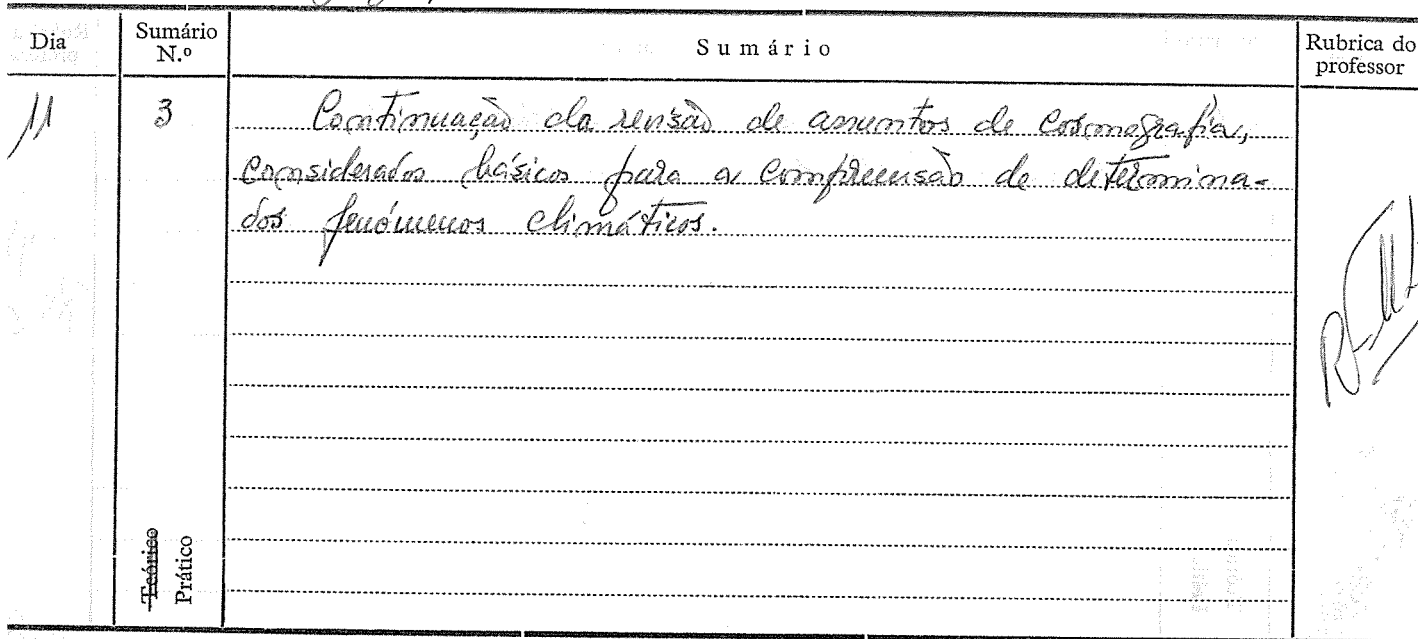 Dia
Sumário
N.º
Sumário
Rubrica do
professor
11
3
Continuação da revisão de assuntos de Cosmografia,
considerados básicos para a compreensão de determina-
dos fenómenos climáticos.
Teórico
Prático